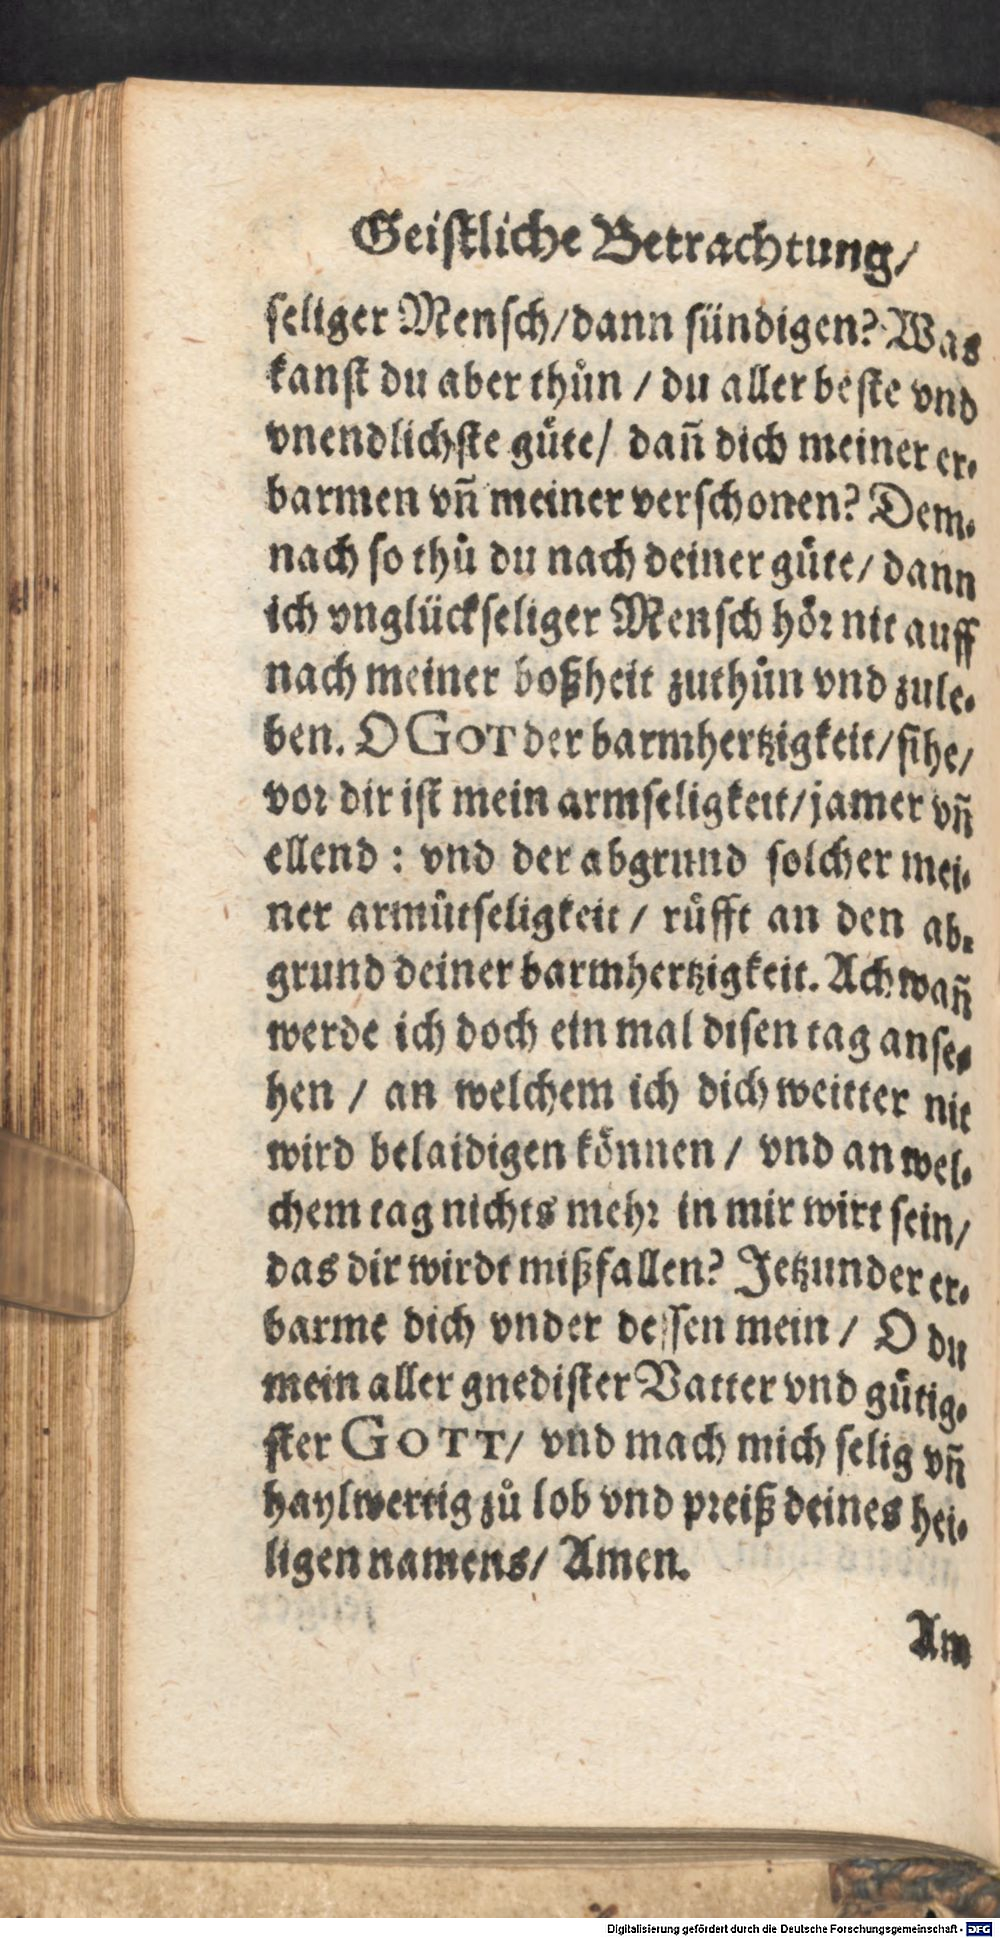 Geistliche Betrachtung/
seliger Mensch/dann sündigen? Was
kanst du aber thůn / du aller beste vnd
vnendlichste guͤte/ dañ dich meiner er-
barmen vñ meiner verschonen? Dem-
nach so thů du nach deiner guͤte/ dann
ich vnglückseliger Mensch hoͤr nit auff
nach meiner boßheit zuthůn vnd zule-
ben. O GOT der barmhertzigkeit/ sihe/
vor dir ist mein armseligkeit/ jamer vñ
ellend : vnd der abgrund solcher mei-
ner armuͤtseligkeit / ruͤfft an den ab-
grund deiner barmhertzigkeit. Ach wañ
werde ich doch ein mal disen tag anse-
hen / an welchem ich dich weitter nit
wird belaidigen koͤnnen / vnd an wel-
chem tag nichts mehr in mir wirt sein/
das dir wirdt mißfallen? Jetzunder er-
barme dich vnder dessen mein / O du
mein aller gnedister Vatter vnd guͤtig-
ster GOTT/ vnd mach mich selig vñ
haylwertig zů lob vnd preiß deines hei-
ligen namens/ Amen.
Am
Digitalisierung gefördert durch die Deutsche Forschungsgemeinschaft - DFG